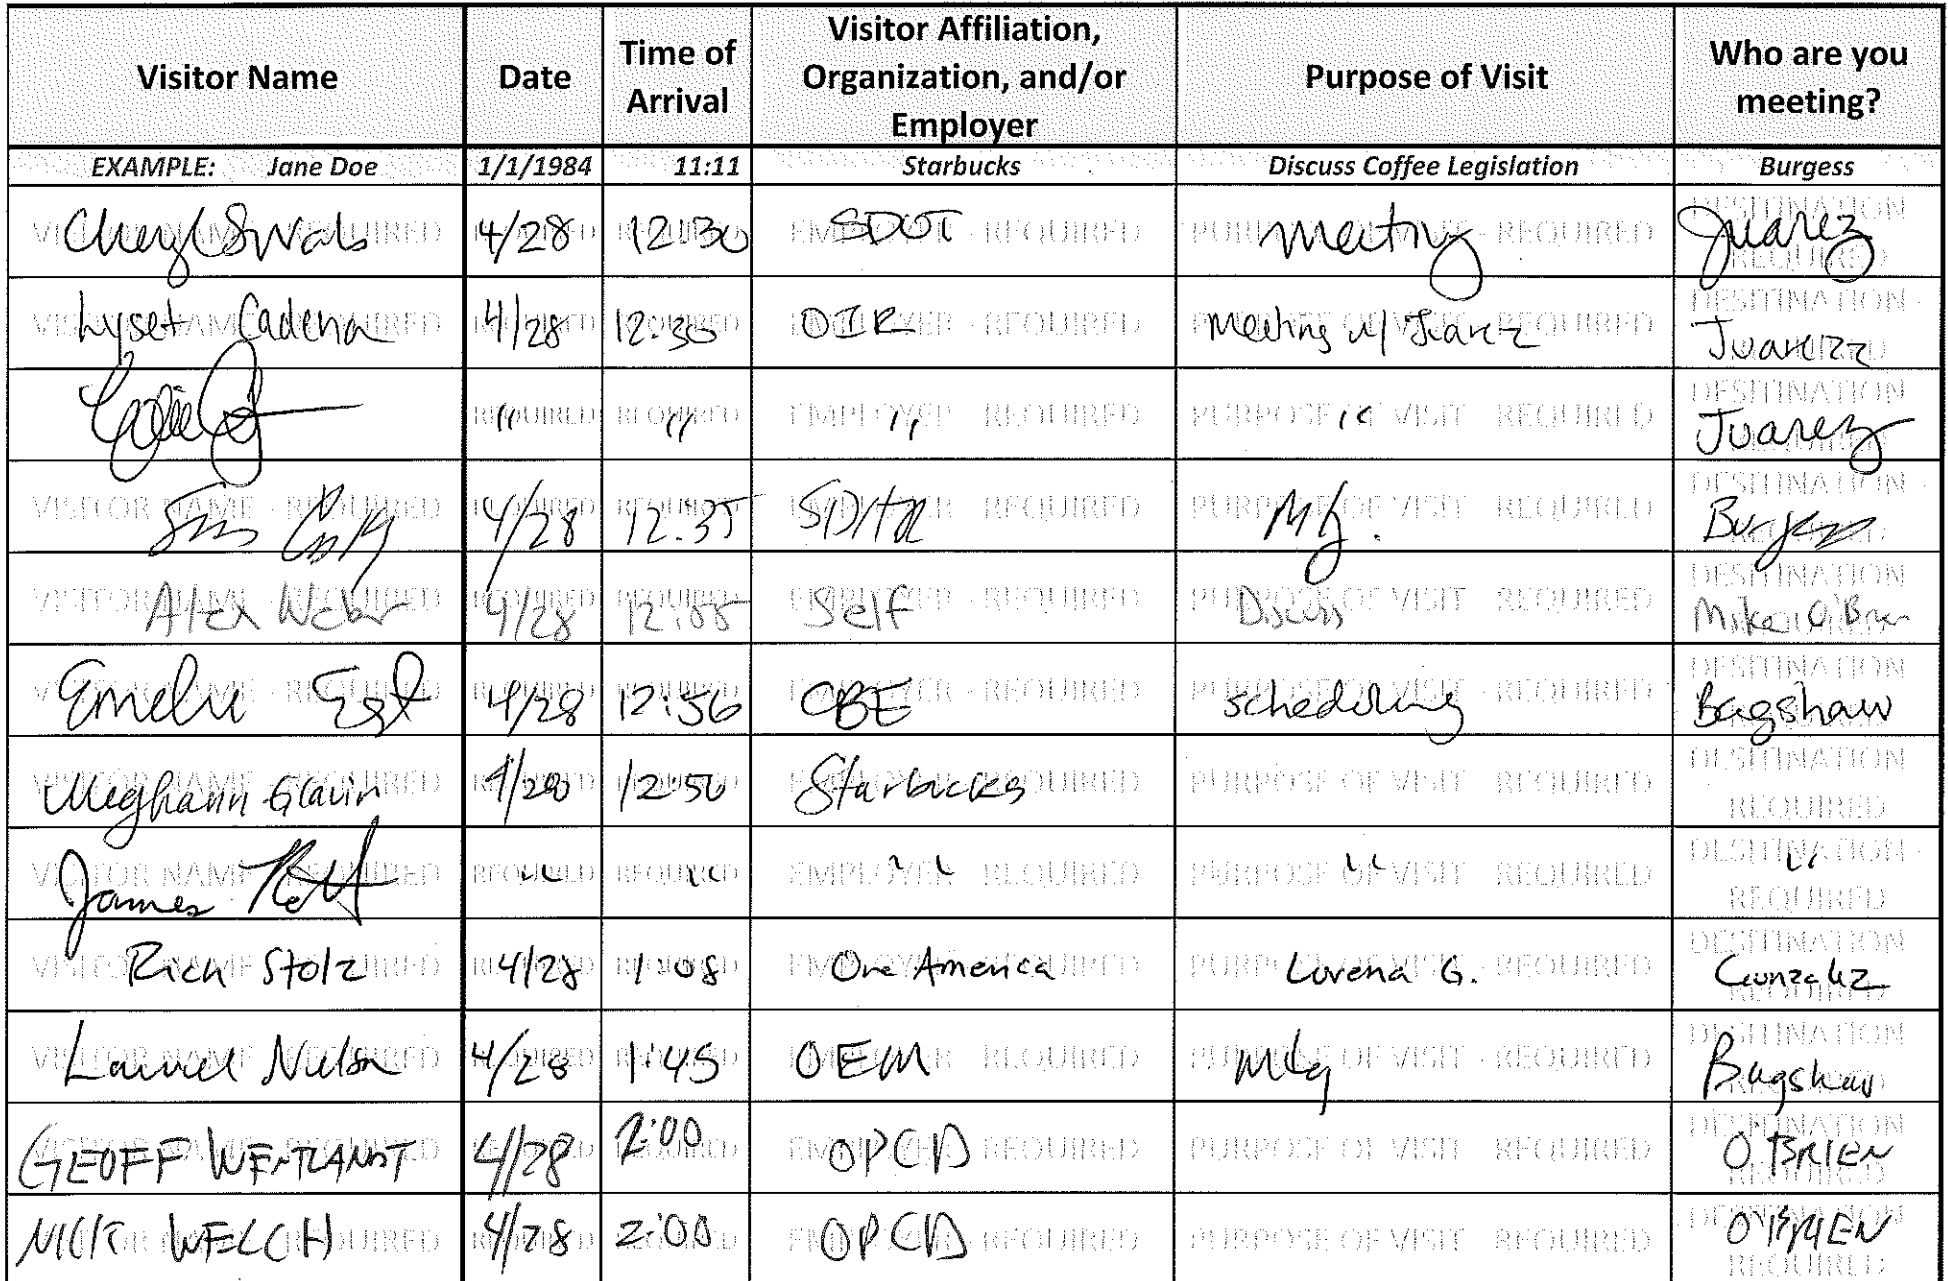 Visitor Name | Date | Time of Arrival | Visitor Affiliation, Organization, and/or Employer | Purpose of Visit | Who are you meeting?
EXAMPLE: Jane Doe | 1/1/1984 | 11:11 | Starbucks | Discuss Coffee Legislation | Burgess
Cheryl Swab | 4/28 | 12:30 | SDOT | meeting | Juarez
Lyset Cadena | 4/28 | 12:30 | OIR | Meeting w/ Juarez | Juarez
" | " | " | " | Juarez
4/28 | 12:35 | Mtg. | Burgess
Alex Weber | 4/28 | Self | Discuss | Mike O'Brien
Emelie East | 4/28 | 12:56 | CBE | scheduling | Bagshaw
Meghann Glavin | 4/28 | 12:56 | Starbucks
James | " | " | " | " | "
Rich Stolz | 4/28 | 1:08 | One America | Lorena G. | Gonzalez
Laurel Nelson | 4/28 | 1:45 | OEM | Mtg | Bagshaw
GEOFF WENTLANDT | 4/28 | 2:00 | OPCD | O'BRIEN
NICK WELCH | 4/28 | 2:00 | OPCD | O'BRIEN